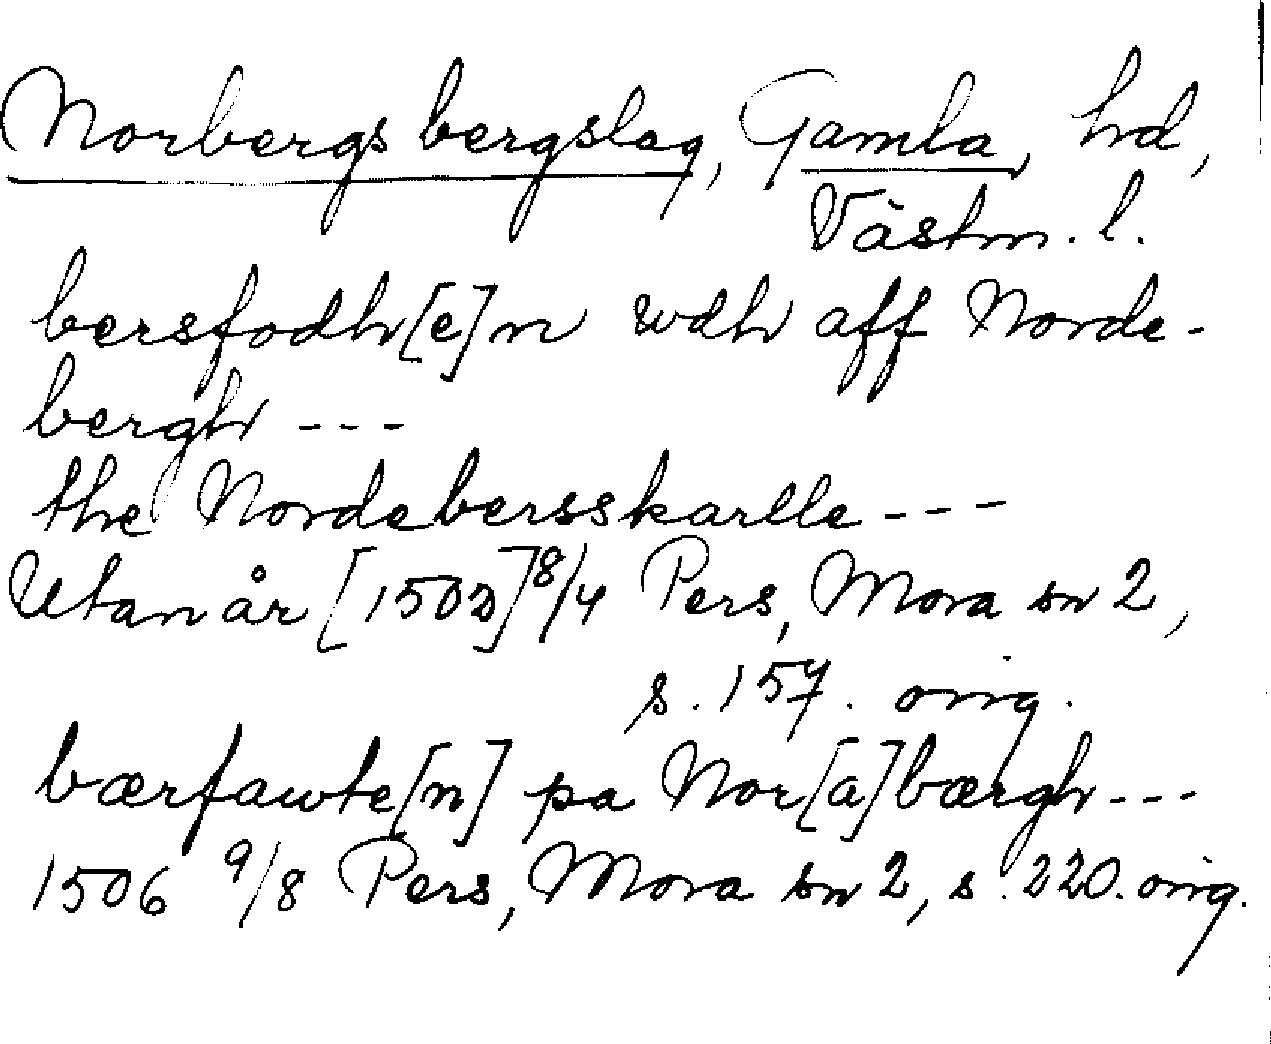 Norbergs bergslag, Gamla, hd,
Västm. l.
bersfodh[e]n wdh aff Norde-
bergh ---
the Nordebersskarlle ---
Utan år [1502] 8/4 Pers, Mora sn 2,
s. 157. orig.
bærfawte[n] pa Nor[a]bærgh ---
1506 9/8 Pers, Mora sn 2, s. 220. orig.